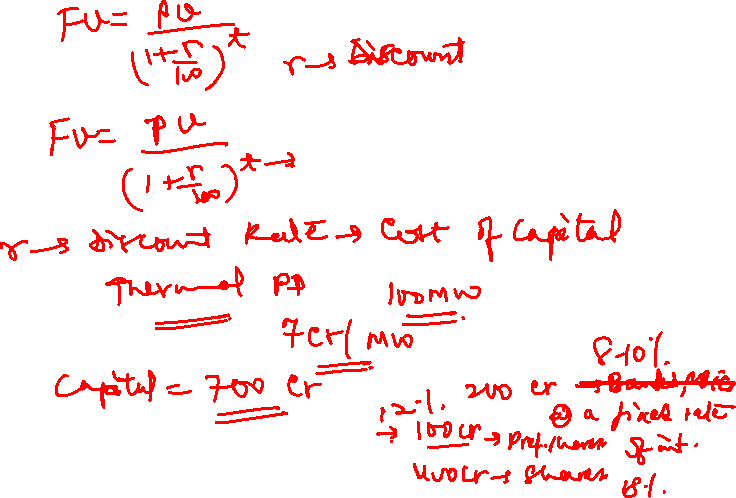 FV = PV / (1 + r/100)^t r → Discount
FV = PV / (1 + r/100)^t →
r → Discount Rate → Cost of Capital
Thermal PP 100 MW
7 Cr / MW
Capital = 700 Cr
8-10%
200 cr @ a fixed rate of int.
12% → 100 cr → Pref. shares
400 cr → Shares 18%